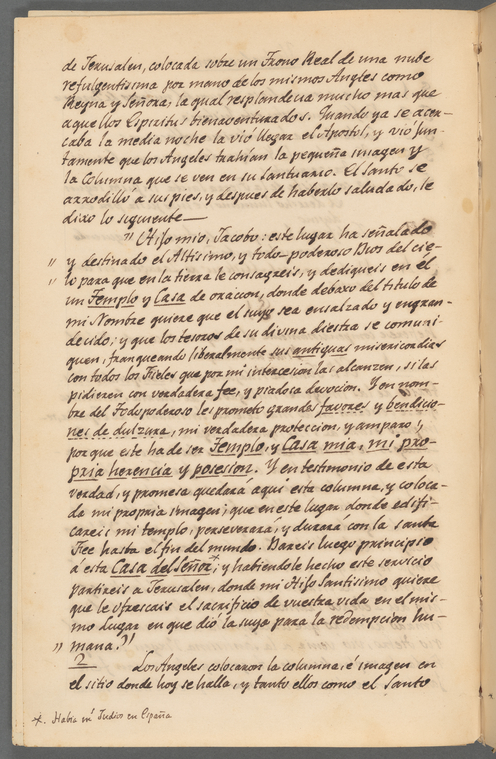 de Jerusalen, colocada sobre un Trono Real de una nube
refulgentisima por mano de los mismos Angles como
Reyna y Señora, la qual resplandecia mucho mas que
aquellos Espiritus bienaventurados. Quando ya se acer-
caba la media noche la vió llegar el Apostol, y vió jun-
tamente que los Angeles trahian la pequeña imagen y
la Columna que se ven en su Santuario. El Santo se
arrodilló a sus pies, y despues de haberlo saludado, le
dixo lo siguiente —
" Hijo mio, Jacobo: este lugar ha señalado
" y destinado el Altisimo, y todo-poderoso Dios del cie-
" lo para que en la tierra le consagreis, y dediqueis en él
un Templo y Casa de oracion, donde debaxo del titulo de
mi Nombre quiere que el suyo sea ensalzado y engran-
decido; y que los tesoros de su divina diestra se comuni-
quen, franqueando liberalmente sus antiguas misericordias
con todos los Fieles que por mi intercesion las alcanzen, si las
pidieren con verdadera fee, y piadosa devocion. Y en nom-
bre del Todopoderoso les prometo grandes favores y bendicio-
nes de dulzura, mi verdadera proteccion, y amparo,
porque este ha de ser Templo, y Casa mia, mi pro-
pria herencia y posesion. Y en testimonio de esta
verdad, y promesa quedará aqui esta columna, y coloca-
da mi propria imagen; que en este lugar, donde edifi-
careis mi templo, perseverará, y durará con la santa
Fee hasta el fin del mundo. Dareis luego principio
á esta Casa del Señor*; y habiendole hecho este servicio
partireis a Jerusalen, donde mi Hijo Santisimo quiere
que le ofrescais el sacrificio de vuestra vida en el mis-
mo Lugar en que dió la suya para la redempcion hu-
" mana."
2 Los Angeles colocaron la columna, é imagen en
el sitio donde hoy se halla, y tanto ellos como el Santo
*. Habia Judios en España